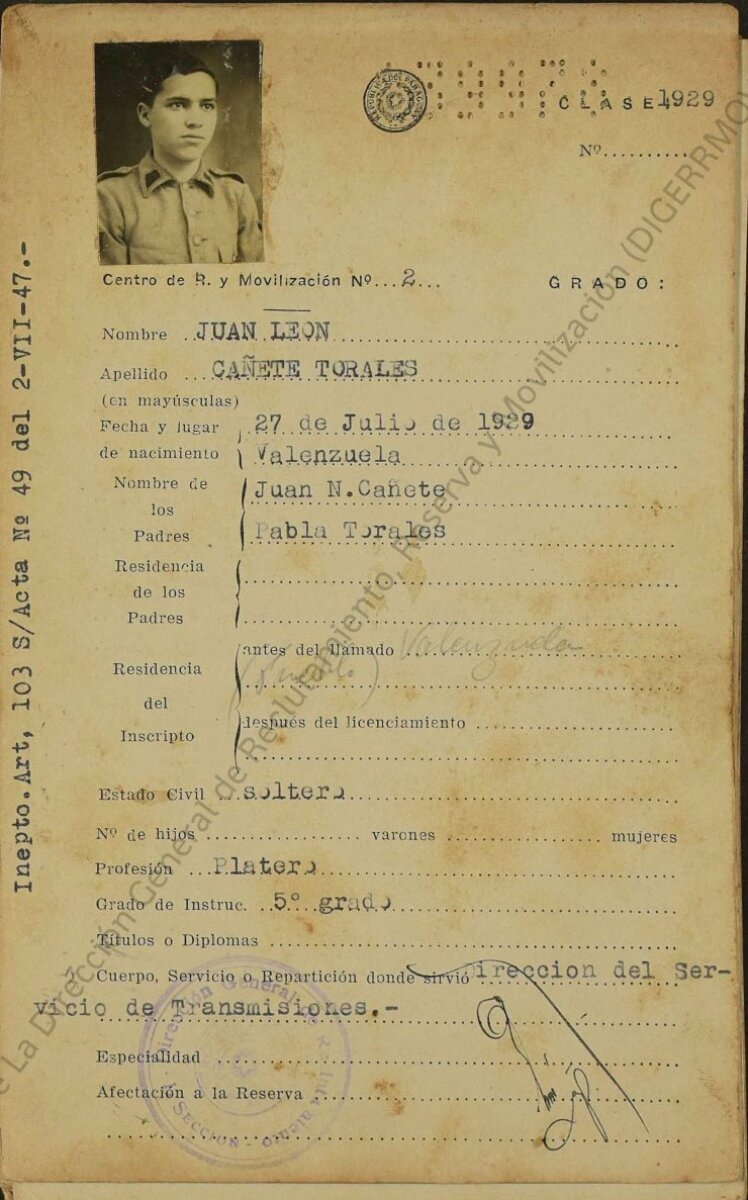 REPUBLICA DEL PARAGUAY
CLASE 1929
Nº
Centro de R. y Movilización Nº 2 GRADO:
Nombre JUAN LEON
Apellido CAÑETE TORALES
(en mayúsculas)
Fecha y lugar 27 de Julio de 1929
de nacimiento Valenzuela
Nombre de Juan N. Cañete
los
Padres Pabla Torales
Residencia
de los
Padres
antes del llamado Valenzuela
Residencia
del
después del licenciamiento
Inscripto
Estado Civil soltero
Nº de hijos varones mujeres
Profesión Platero
Grado de Instruc. 5º grado
Títulos o Diplomas
Cuerpo, Servicio o Repartición donde sirvió Direccion del Ser-
vicio de Transmisiones.-
Especialidad
Afectación a la Reserva
Inepto. Art, 103 S/Acta Nº 49 del 2-VII-47.-
Dirección General de
SECCION
La Dirección General de Reclutamiento, Reserva y Movilización (DIGERRMO